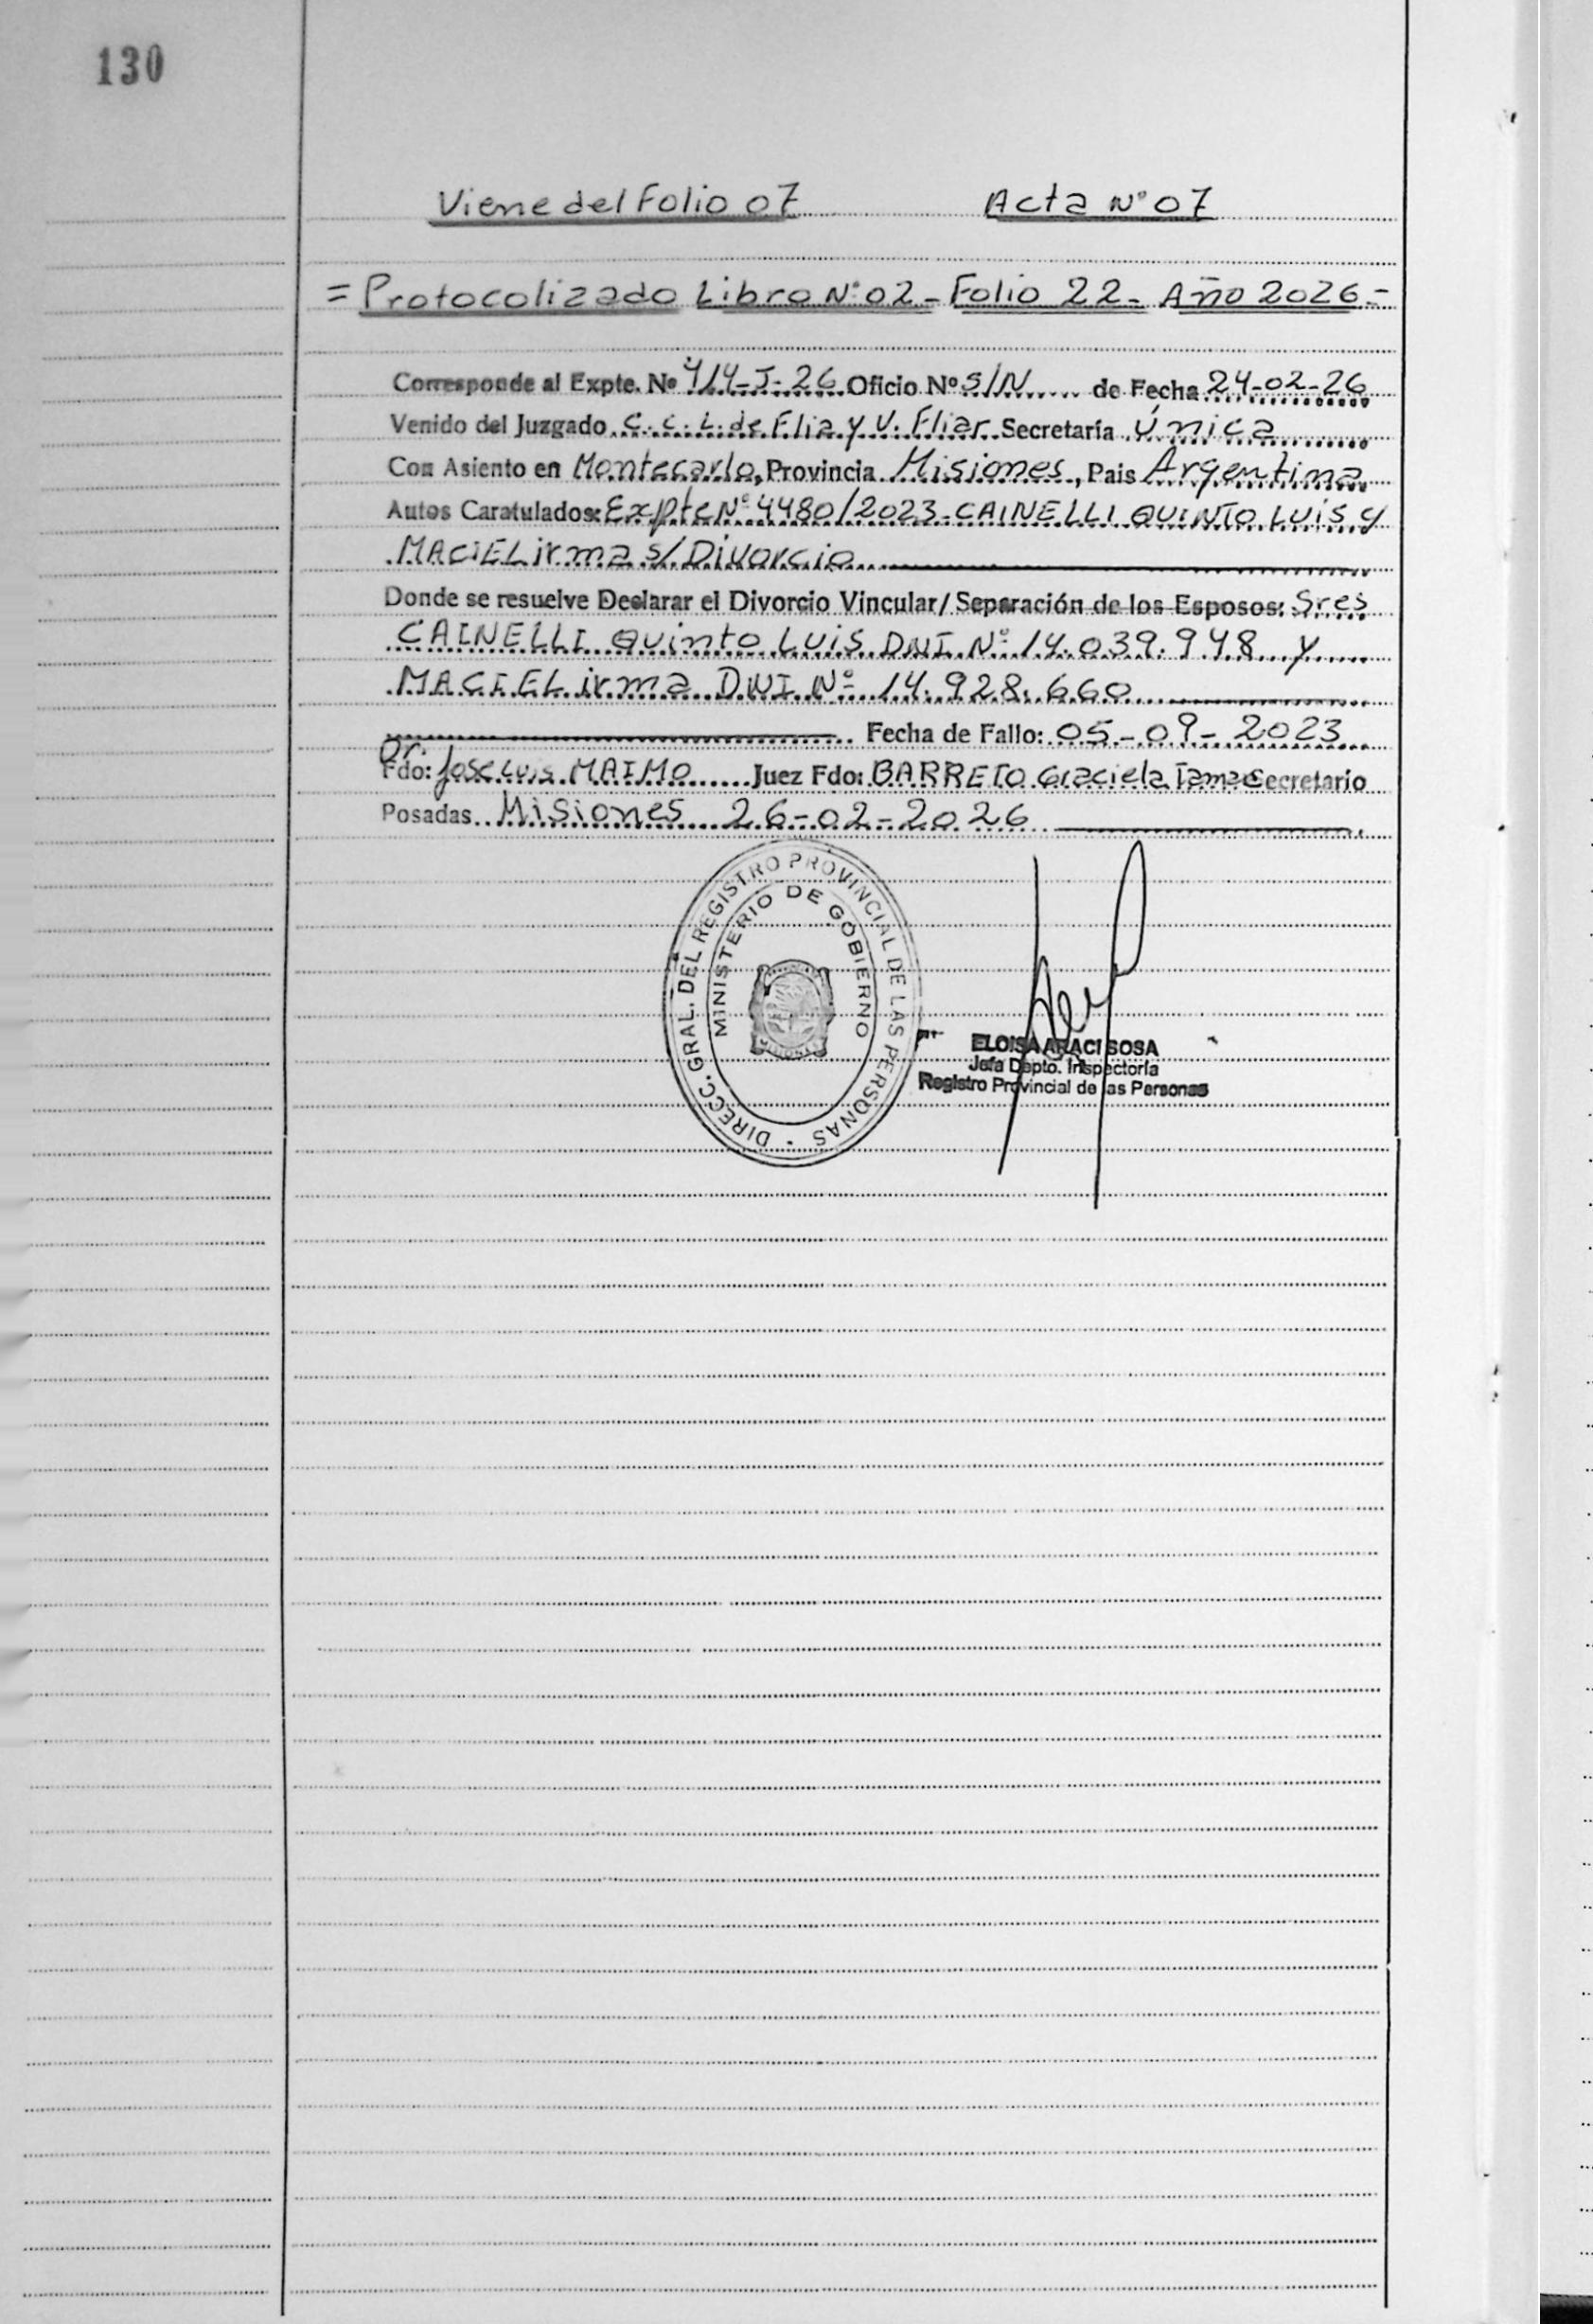 130
Viene del Folio 07 Acta N° 07
= Protocolizado Libro N° 02 - Folio 22 - Año 2026 =
Corresponde al Expte. Nº 414-J-26 Oficio Nº S/N de Fecha 24-02-26
Venido del Juzgado C. C. L. de Flia y V. Fliar Secretaría Única
Con Asiento en Montecarlo, Provincia Misiones, Pais Argentina
Autos Caratulados: Expte N° 4480/2023 - CAINELLI QUINTO LUIS y
MACIEL irma s/ Divorcio
Donde se resuelve Declarar el Divorcio Vincular/ Separación de los Esposos: Sres
CAINELLI Quinto Luis DNI N° 14.039.948 y
MACIEL irma DNI N° 14.928.660
Fecha de Fallo: 05-09-2023
Dr.
Fdo: Jose Luis MAIMO Juez Fdo: BARRETO Graciela Secretario
Posadas Misiones 26-02-2026
DIRECC. GRAL. DEL REGISTRO PROVINCIAL DE LAS PERSONAS
MINISTERIO DE GOBIERNO
ELOISA ARACI SOSA
Jefa Depto. Inspectoría
Registro Provincial de las Personas